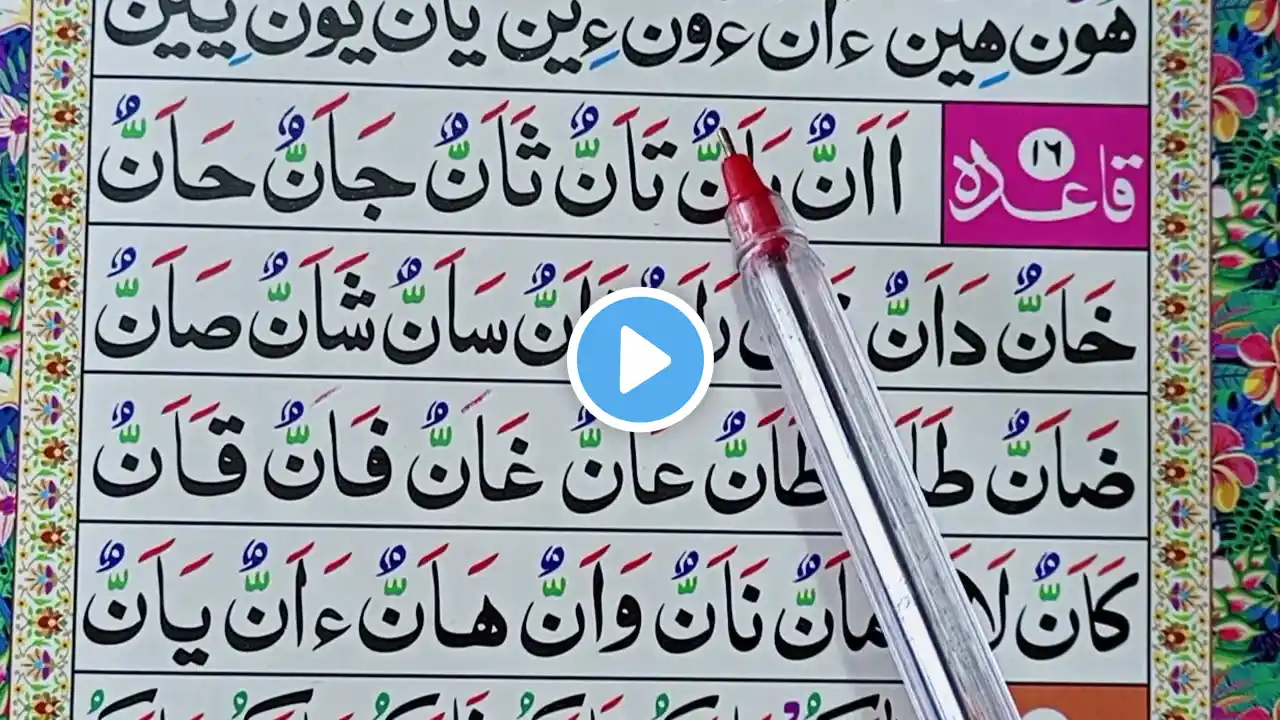 هون هِین ءان ءون ءِین یان یون یِین
قاعدہ ١٦ اَاَنٌّ تَاَنٌّ ثَاَنٌّ جَاَنٌّ حَاَنٌّ
خَاَنٌّ دَاَنٌّ سَاَنٌّ شَاَنٌّ صَاَنٌّ
ضَاَنٌّ عَاَنٌّ غَاَنٌّ فَاَنٌّ قَاَنٌّ
كَاَنٌّ نَاَنٌّ وَاَنٌّ هَاَنٌّ ءَاَنٌّ يَاَنٌّ